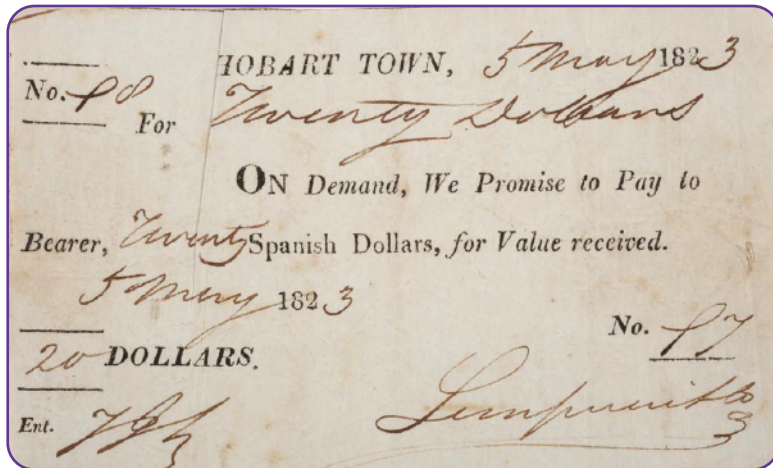 HOBART TOWN, 5 May 1823
No. 98
For Twenty Dollars
ON Demand, We Promise to Pay to
Bearer, Twenty Spanish Dollars, for Value received.
5 May 1823
No. 97
20 DOLLARS.
Ent.